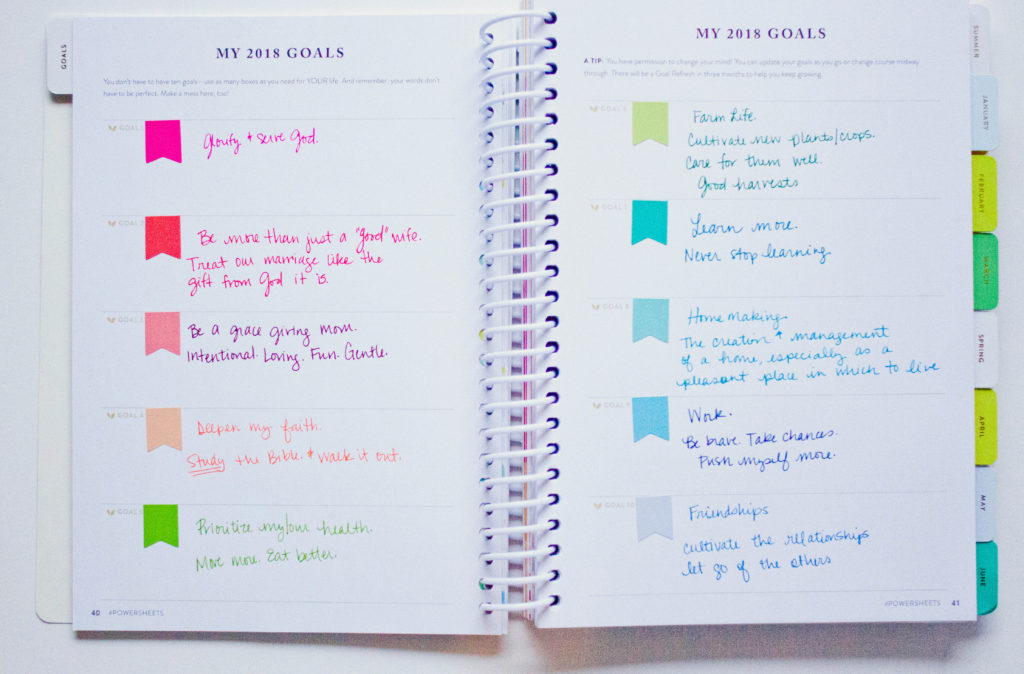 GOALS
MY 2018 GOALS
You don't have to have ten goals—use as many boxes as you need for YOUR life. And remember: your words don't
have to be perfect. Make a mess here, too!
GOAL 1
Glorify + serve God.
GOAL 2
Be more than just a "good" wife.
Treat our marriage like the
gift from God it is.
GOAL 3
Be a grace giving mom.
Intentional. Loving. Fun. Gentle.
GOAL 4
Deepen my faith.
Study the Bible. + walk it out.
GOAL 5
Prioritize my/our health.
Move more. Eat better.
40 #POWERSHEETS
MY 2018 GOALS
A TIP: You have permission to change your mind! You can update your goals as you go or change course midway
through. There will be a Goal Refresh in three months to help you keep growing.
GOAL 6
Farm Life.
Cultivate new plants/crops.
Care for them well.
Good harvests
GOAL 7
Learn more.
Never stop learning
GOAL 8
Home making
The creation + management
of a home, especially as a
pleasant place in which to live
GOAL 9
Work.
Be brave. Take chances.
Push myself more.
GOAL 10
Friendships
cultivate the relationships
let go of the others
#POWERSHEETS 41
SUMMER
JANUARY
FEBRUARY
MARCH
SPRING
APRIL
MAY
JUNE